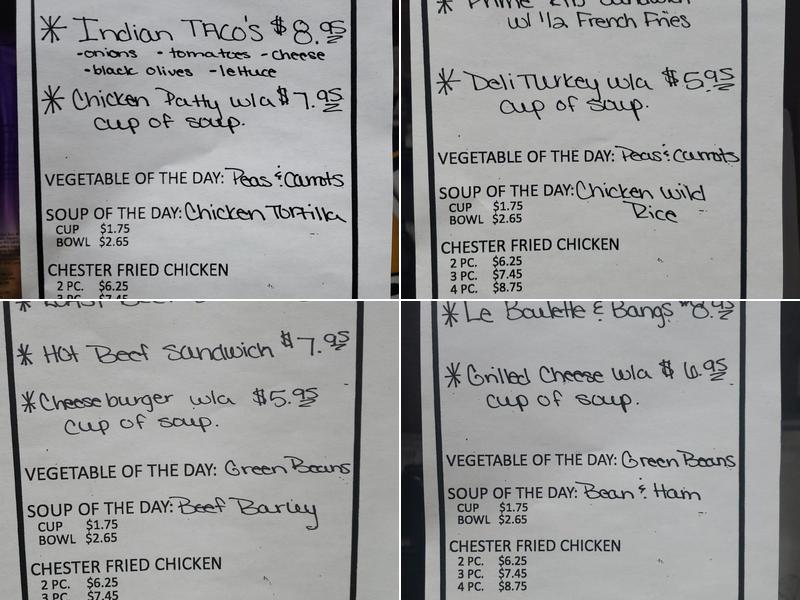 * Indian TACO'S $8.95
-onions -tomatoes -cheese
-black olives -lettuce
* Chicken Patty w/a $7.95
cup of soup.
VEGETABLE OF THE DAY: Peas & Carrots
SOUP OF THE DAY: Chicken Tortilla
CUP $1.75
BOWL $2.65
CHESTER FRIED CHICKEN
2 PC. $6.25
3 PC. $7.45
* Prime Rib Sandwich
w/ 1/2 French Fries
* Deli Turkey w/a $5.95
cup of soup.
VEGETABLE OF THE DAY: Peas & Carrots
SOUP OF THE DAY: Chicken Wild
Rice
CUP $1.75
BOWL $2.65
CHESTER FRIED CHICKEN
2 PC. $6.25
3 PC. $7.45
4 PC. $8.75
* Hot Beef Sandwich $7.95
* Cheeseburger w/a $5.95
cup of soup.
VEGETABLE OF THE DAY: Green Beans
SOUP OF THE DAY: Beef Barley
CUP $1.75
BOWL $2.65
CHESTER FRIED CHICKEN
2 PC. $6.25
3 PC. $7.45
* Le Boulette & Bangs $8.95
* Grilled Cheese w/a $6.95
cup of soup.
VEGETABLE OF THE DAY: Green Beans
SOUP OF THE DAY: Bean & Ham
CUP $1.75
BOWL $2.65
CHESTER FRIED CHICKEN
2 PC. $6.25
3 PC. $7.45
4 PC. $8.75